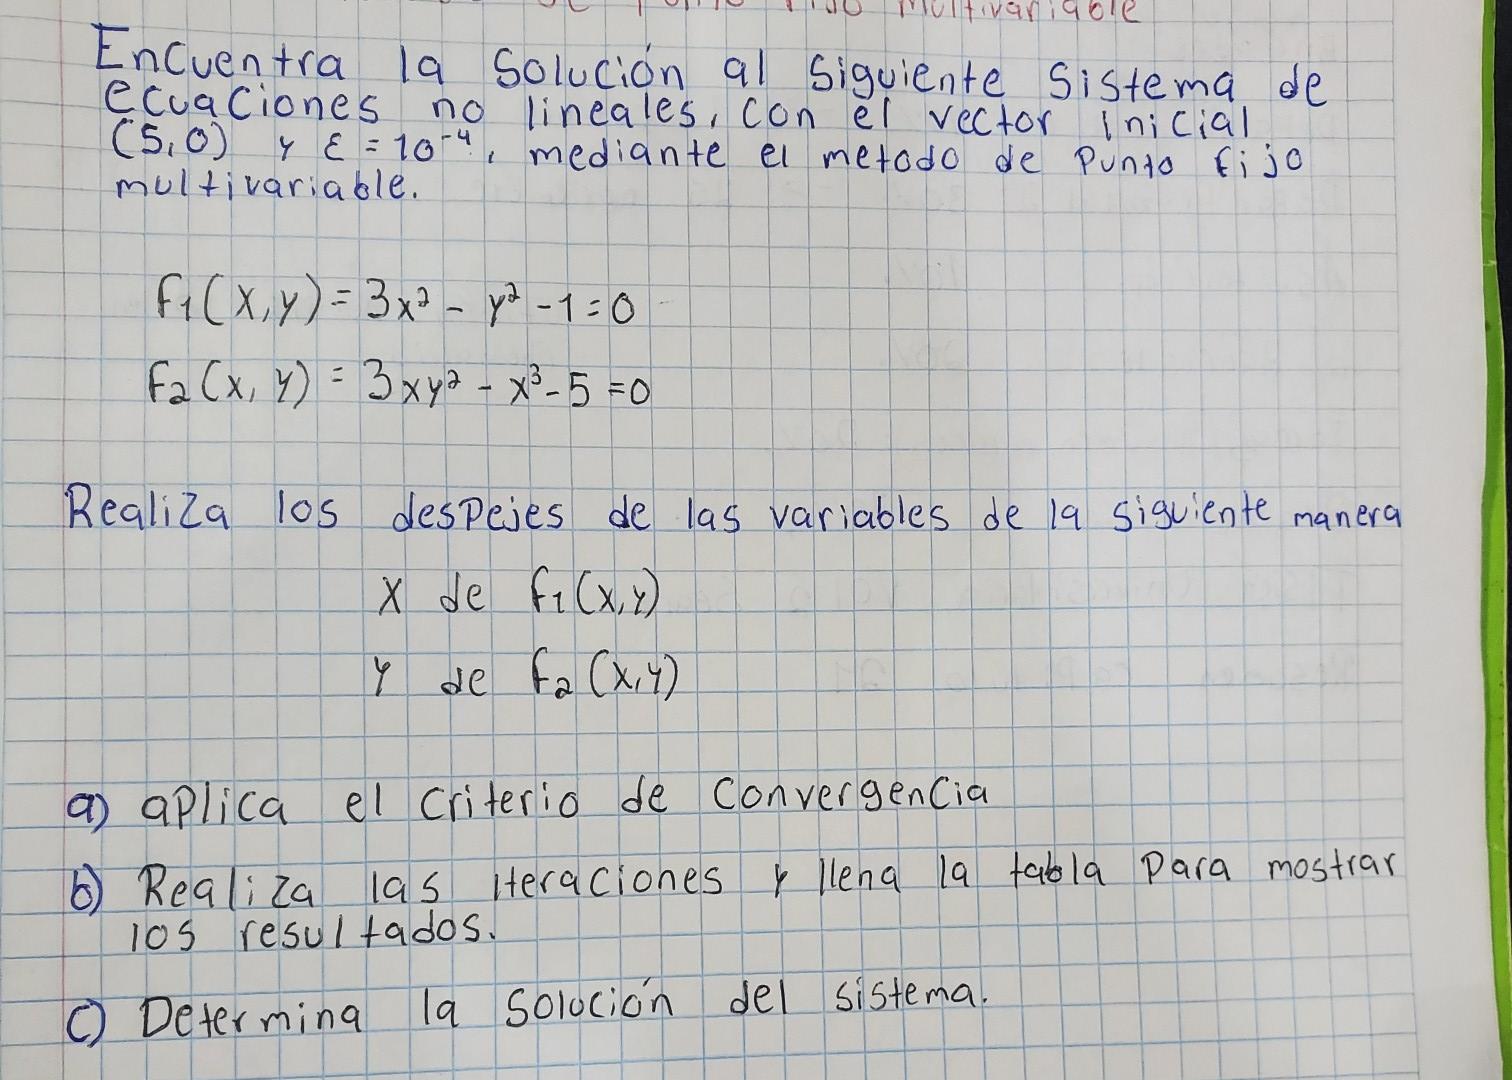 Multivariable
Encuentra la solución al siguiente sistema de
ecuaciones no lineales, con el vector inicial
(5,0) y ε = 10⁻⁴, mediante el metodo de punto fijo
multivariable.
f₁(x,y) = 3x² - y² - 1 = 0
f₂(x,y) = 3xy² - x³ - 5 = 0
Realiza los despejes de las variables de la siguiente manera
x de f₁(x,y)
y de f₂(x,y)
a) aplica el criterio de convergencia
b) Realiza las iteraciones y llena la tabla para mostrar
los resultados.
c) Determina la solución del sistema.